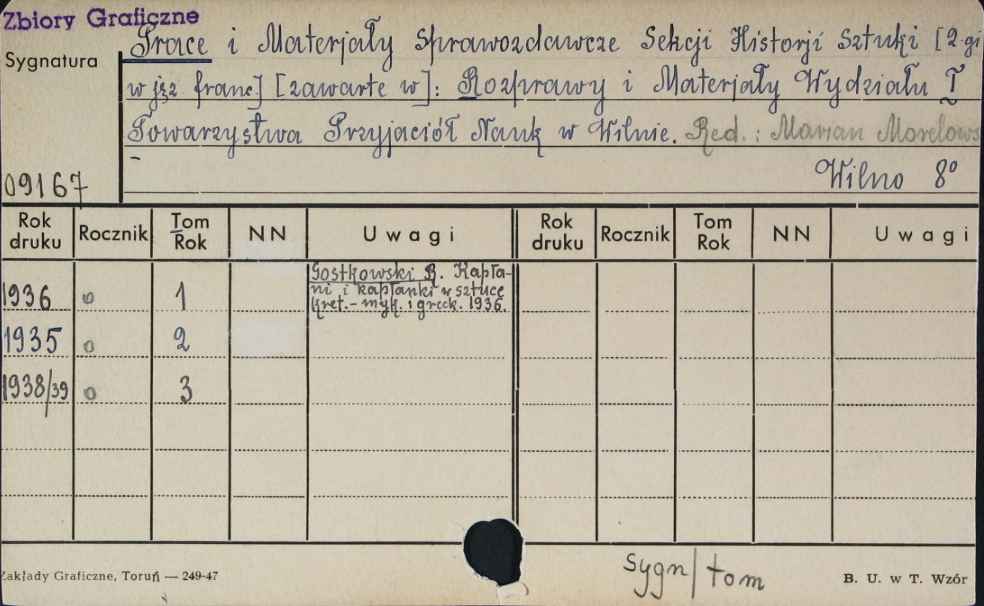 Zbiory Graficzne
Sygnatura
09167
Prace i Materjały Sprawozdawcze Sekcji Historji Sztuki [2-gi
w jęz franc] [zawarte w]: Rozprawy i Materjały Wydziału I
Towarzystwa Przyjaciół Nauk w Wilnie. Red.: Marian Morelows
Wilno 8°
Rok druku Rocznik Tom Rok NN Uwagi Rok druku Rocznik Tom Rok NN Uwagi
1936 o 1 Gostkowski R. Kapła-
ni i kapłanki w sztuce
kret.-myk. i greck. 1936.
1935 o 2
1938/39 o 3
Zakłady Graficzne, Toruń — 249-47
sygn/tom
B. U. w T. Wzór